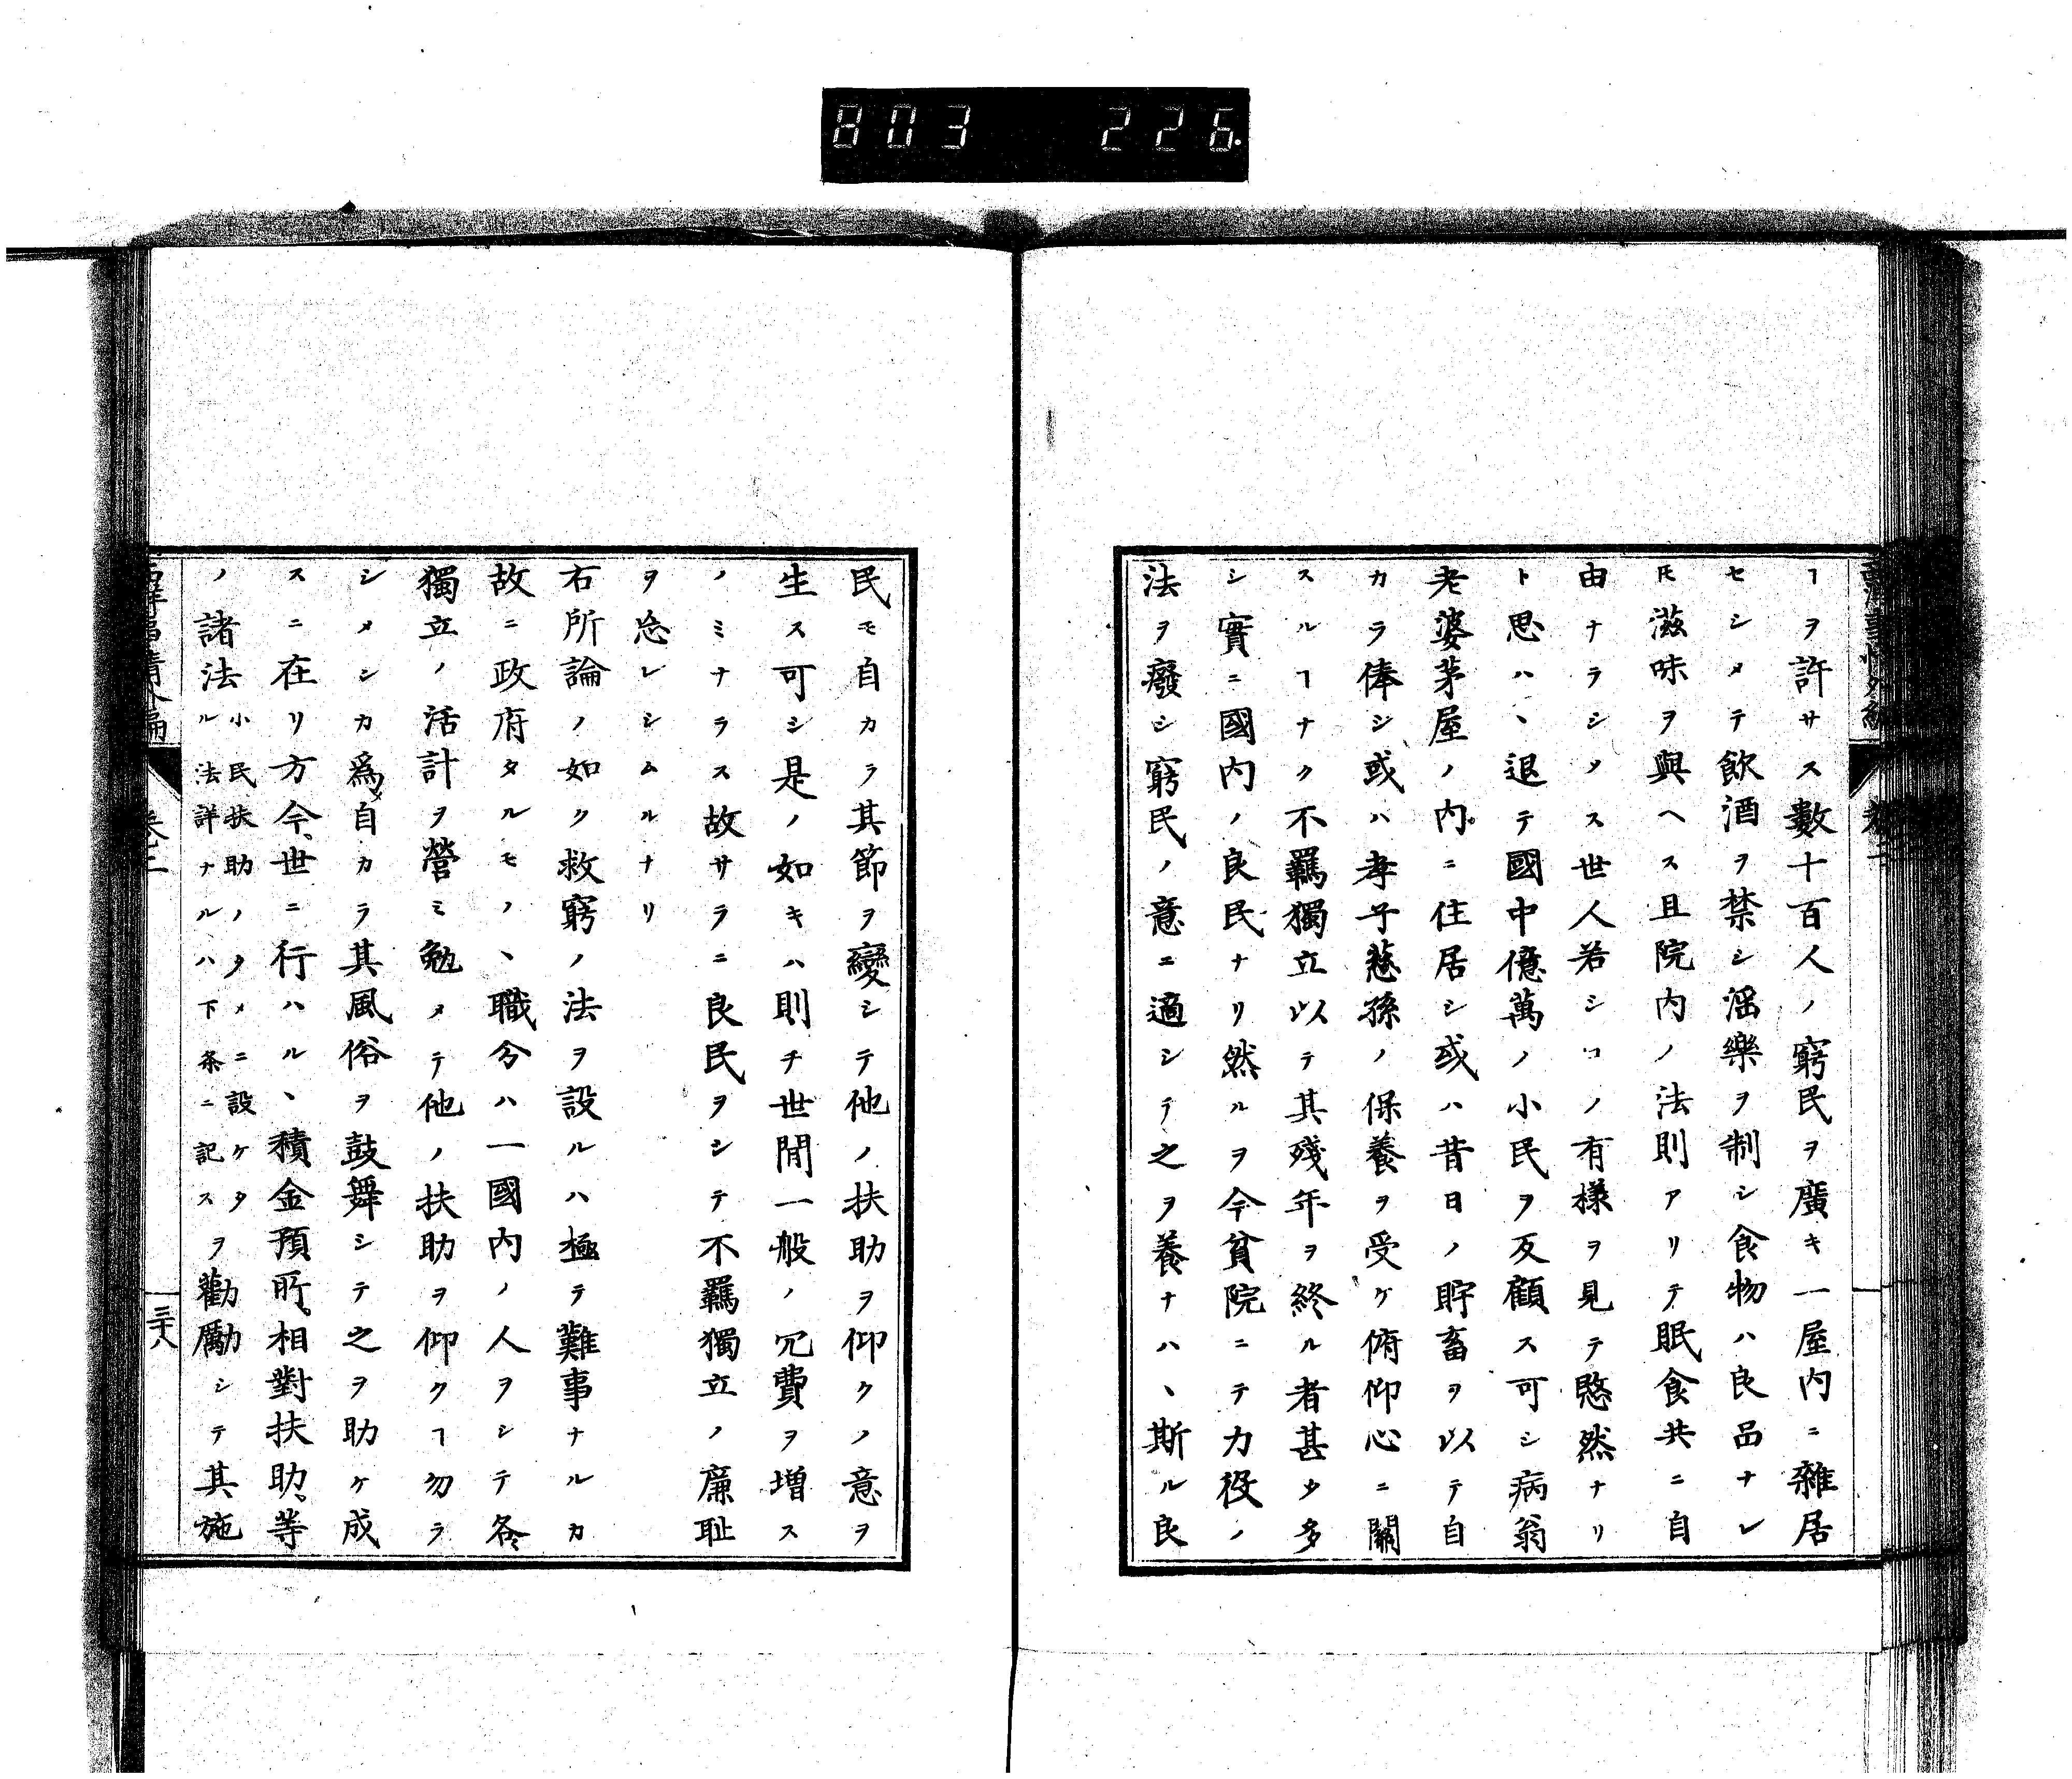 803 226
ヿヲ許サス數十百人ノ窮民ヲ廣キ一屋内ニ雜居
セシメテ飲酒ヲ禁シ滛樂ヲ制シ食物ハ良品ナレ
𪜈滋味ヲ與ヘス且院内ノ法則アリテ眠食共ニ自
由ナラシメス世人若シコノ有様ヲ見テ愍然ナリ
ト思ハヽ退テ國中億萬ノ小民ヲ反顧ス可シ病翁
老婆茅屋ノ内ニ住居シ或ハ昔日ノ貯畜ヲ以テ自
カラ俸シ或ハ孝子慈孫ノ保養ヲ受ケ俯仰心ニ關
スルヿナク不羈獨立以テ其殘年ヲ終ル者甚タ多
シ實ニ國内ノ良民ナリ然ルヲ今貧院ニテ力役ノ
法ヲ廢シ窮民ノ意ニ適シテ之ヲ養ナハヽ斯ル良
民モ自カラ其節ヲ變シテ他ノ扶助ヲ仰クノ意ヲ
生ス可シ是ノ如キハ則チ世間一般ノ冗費ヲ増ス
ノミナラス故サラニ良民ヲシテ不羈獨立ノ廉耻
ヲ忘レシムルナリ
右所論ノ如ク救窮ノ法ヲ設ルハ極テ難事ナルカ
故ニ政府タルモノヽ職分ハ一國内ノ人ヲシテ各
獨立ノ活計ヲ營ミ勉メテ他ノ扶助ヲ仰クヿ勿ラ
シメンカ爲メ自カラ其風俗ヲ鼓舞シテ之ヲ助ケ成
スニ在リ方今世ニ行ハルヽ積金預所、相對扶助、等
ノ諸法小民扶助ノタメニ設ケタ
ル法詳ナルハ下条ニ記スヲ勸勵シテ其施
西洋事情外編
卷二
三十八